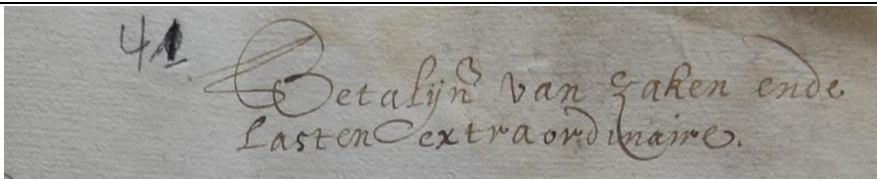 41
Betalijn van zaken ende
Lasten extraordinaire.